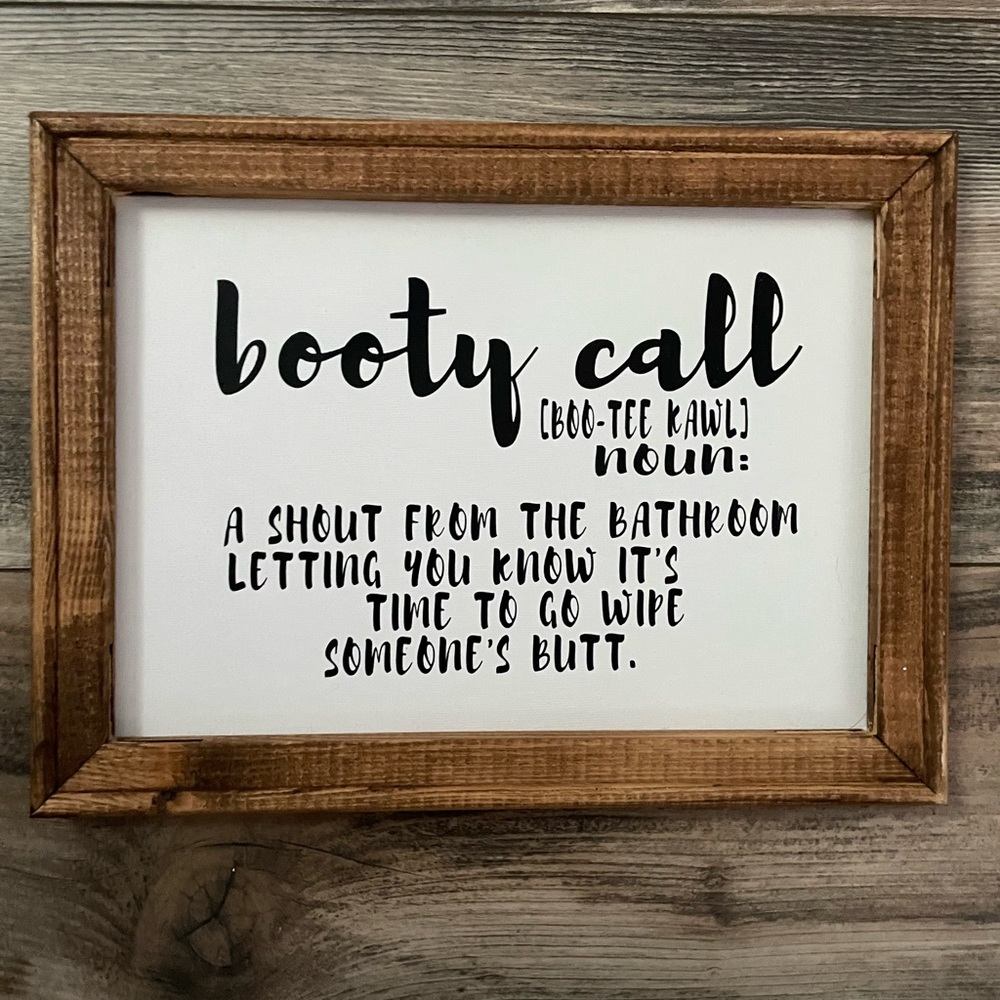 booty call
[BOO-TEE KAWL]
noun:
A SHOUT FROM THE BATHROOM
LETTING YOU KNOW IT'S
TIME TO GO WIPE
SOMEONE'S BUTT.